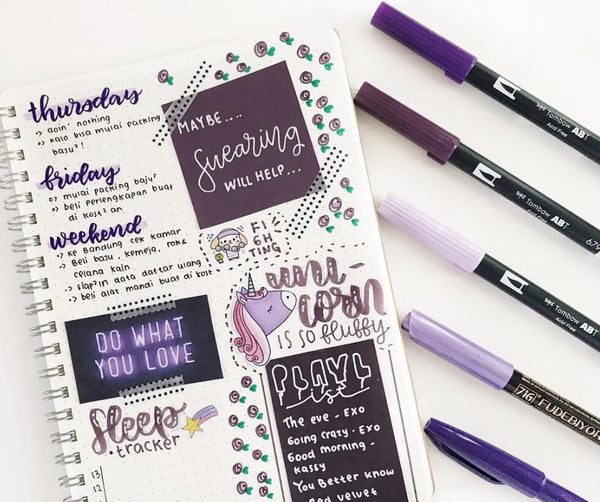 thursday
-> doin' nothing
-> kalo bisa mulai packing
baju²!
friday
-> mulai packing baju²
-> beli perlengkapan buat
di kost²an
weekend
-> ke Bandung cek kamar
-> Beli baju, kemeja, rok &
celana kain
-> siap²in data daftar ulang
-> beli alat mandi buat di kost
MAYBE....
Swearing
WILL HELP...
FI
GH
TING
uni-
corn
IS SO fluffy
DO WHAT
YOU LOVE
Sleep
.tracker
13
12
PLAYL
ist
The eve - Exo
Going crazy - Exo
Good morning -
kassy
You Better know
red velvet
Tombow ABT
Acid Free
Tombow ABT
Acid Free
679
Tombow ABT
Acid Free
716 FUDEBIYO